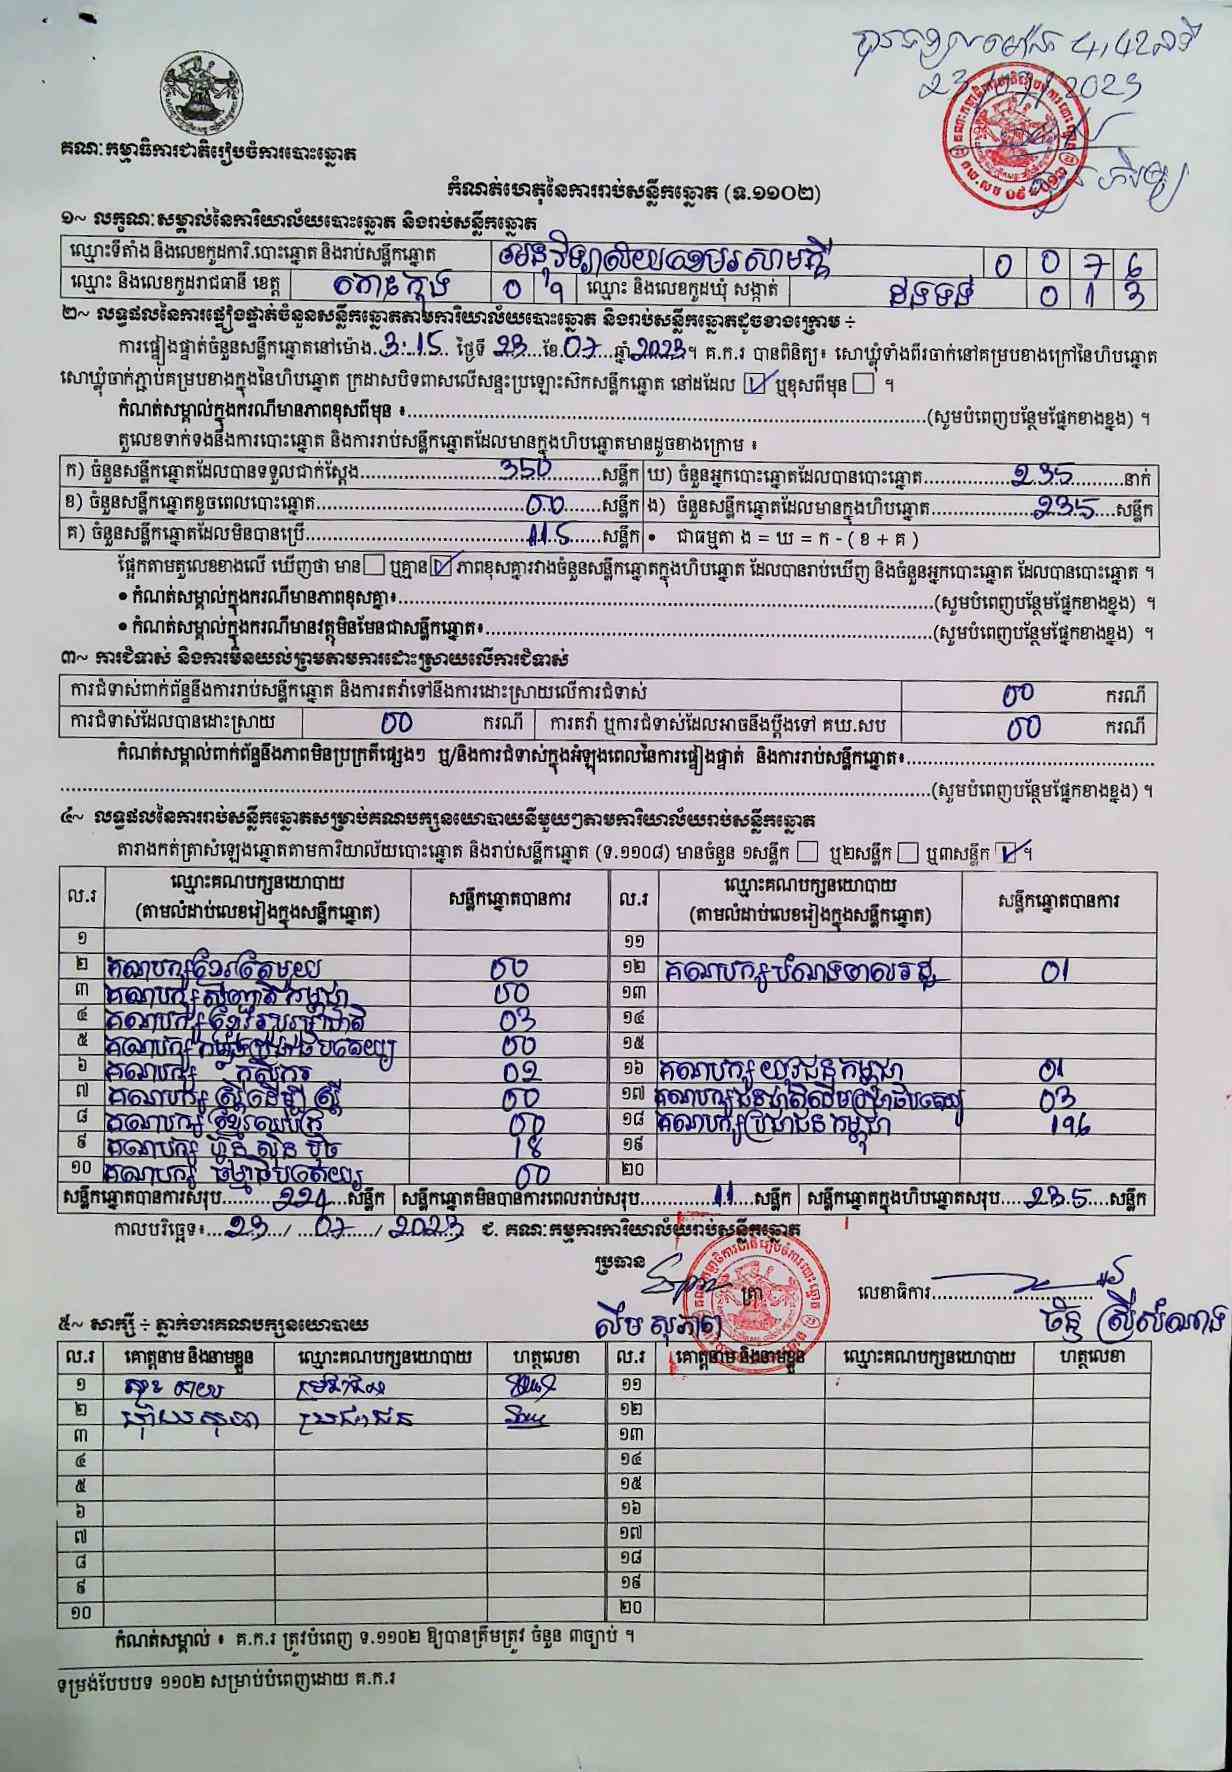 បានទទួលម៉ោង 4,42នាទី
23/07/2023
គណៈកម្មាធិការជាតិរៀបចំការបោះឆ្នោត
កំណត់ហេតុនៃការរាប់សន្លឹកឆ្នោត (ទ.១១០២)
១~ លក្ខណៈសម្គាល់នៃការិយាល័យបោះឆ្នោត និងរាប់សន្លឹកឆ្នោត
ឈ្មោះទីតាំង និងលេខកូដការិ.បោះឆ្នោត និងរាប់សន្លឹកឆ្នោត អនុវិទ្យាល័យ សាមគ្គី 0 0 7 6
ឈ្មោះ និងលេខកូដរាជធានី ខេត្ត កោះកុង 0 9 ឈ្មោះ និងលេខកូដឃុំ សង្កាត់ ដងទង់ 0 1 3
២~ លទ្ធផលនៃការផ្ទៀងផ្ទាត់ចំនួនសន្លឹកឆ្នោតតាមការិយាល័យបោះឆ្នោត និងរាប់សន្លឹកឆ្នោតដូចខាងក្រោម ÷
ការផ្ទៀងផ្ទាត់ចំនួនសន្លឹកឆ្នោតនៅម៉ោង..3:15.. ថ្ងៃទី 23...ខែ.07....ឆ្នាំ2023។ គ.ក.រ បានពិនិត្យ៖ សោឃ្លុំទាំងពីរចាក់នៅគម្របខាងក្រៅនៃហិបឆ្នោត
សោឃ្លុំចាក់ភ្ជាប់គម្របខាងក្នុងនៃហិបឆ្នោត ក្រដាសបិទពាសលើសន្ទះប្រឡោះស៊កសន្លឹកឆ្នោត នៅដដែល ☑ ឬខុសពីមុន ☐ ។
កំណត់សម្គាល់ក្នុងករណីមានភាពខុសពីមុន ៖..........(សូមបំពេញបន្ថែមផ្នែកខាងខ្នង) ។
តួលេខទាក់ទងនឹងការបោះឆ្នោត និងការរាប់សន្លឹកឆ្នោតដែលមានក្នុងហិបឆ្នោតមានដូចខាងក្រោម ៖
ក) ចំនួនសន្លឹកឆ្នោតដែលបានទទួលជាក់ស្តែង..........350..........សន្លឹក ឃ) ចំនួនអ្នកបោះឆ្នោតដែលបានបោះឆ្នោត..........235..........នាក់
ខ) ចំនួនសន្លឹកឆ្នោតខូចពេលបោះឆ្នោត..........00..........សន្លឹក ង) ចំនួនសន្លឹកឆ្នោតដែលមានក្នុងហិបឆ្នោត..........235..........សន្លឹក
គ) ចំនួនសន្លឹកឆ្នោតដែលមិនបានប្រើ..........115..........សន្លឹក • ជាធម្មតា ង = ឃ = ក - ( ខ + គ )
ផ្អែកតាមតួលេខខាងលើ ឃើញថា មាន☐ ឬគ្មាន☑ ភាពខុសគ្នារវាងចំនួនសន្លឹកឆ្នោតក្នុងហិបឆ្នោត ដែលបានរាប់ឃើញ និងចំនួនអ្នកបោះឆ្នោត ដែលបានបោះឆ្នោត ។
• កំណត់សម្គាល់ក្នុងករណីមានភាពខុសគ្នា៖..........(សូមបំពេញបន្ថែមផ្នែកខាងខ្នង) ។
• កំណត់សម្គាល់ក្នុងករណីមានវត្ថុមិនមែនជាសន្លឹកឆ្នោត៖..........(សូមបំពេញបន្ថែមផ្នែកខាងខ្នង) ។
៣~ ការជំទាស់ និងការមិនយល់ព្រមតាមការដោះស្រាយលើការជំទាស់
ការជំទាស់ពាក់ព័ន្ធនឹងការរាប់សន្លឹកឆ្នោត និងការតវ៉ាទៅនឹងការដោះស្រាយលើការជំទាស់ 00 ករណី
ការជំទាស់ដែលបានដោះស្រាយ 00 ករណី ការតវ៉ា ឬការជំទាស់ដែលអាចនឹងប្តឹងទៅ គឃ.សប 00 ករណី
កំណត់សម្គាល់ពាក់ព័ន្ធនឹងភាពមិនប្រក្រតីផ្សេងៗ ឬ/និងការជំទាស់ក្នុងអំឡុងពេលនៃការផ្ទៀងផ្ទាត់ និងការរាប់សន្លឹកឆ្នោត៖..........
..........(សូមបំពេញបន្ថែមផ្នែកខាងខ្នង) ។
៤~ លទ្ធផលនៃការរាប់សន្លឹកឆ្នោតសម្រាប់គណបក្សនយោបាយនីមួយៗតាមការិយាល័យរាប់សន្លឹកឆ្នោត
តារាងកត់ត្រាសំឡេងឆ្នោតតាមការិយាល័យបោះឆ្នោត និងរាប់សន្លឹកឆ្នោត (ទ.១១០៨) មានចំនួន ១សន្លឹក ☐ ឬ២សន្លឹក ☐ ឬ៣សន្លឹក ☑ ។
ល.រ ឈ្មោះគណបក្សនយោបាយ (តាមលំដាប់លេខរៀងក្នុងសន្លឹកឆ្នោត) សន្លឹកឆ្នោតបានការ ល.រ ឈ្មោះគណបក្សនយោបាយ (តាមលំដាប់លេខរៀងក្នុងសន្លឹកឆ្នោត) សន្លឹកឆ្នោតបានការ
១ ១១
២ គណបក្សខ្មែរតែមួយ 00 ១២ គណបក្សបំណងពលរដ្ឋ 01
៣ គណបក្សសញ្ជាតិកម្ពុជា 00 ១៣
៤ គណបក្សខ្មែររួបរួមជាតិ 03 ១៤
៥ គណបក្ស 00 ១៥
៦ គណបក្ស កសិករ 02 ១៦ គណបក្ស យុវជនកម្ពុជា 01
៧ គណបក្ស ស្ត្រីដើម្បី ស្ត្រី 00 ១៧ គណបក្សជនជាតិដើមប្រជាធិបតេយ្យ 03
៨ គណបក្ស ខ្មែរឈប់ក្រ 00 ១៨ គណបក្សប្រជាជនកម្ពុជា 196
៩ គណបក្ស ហ្វ៊ុន ស៊ិន ប៉ិច 18 ១៩
១០ គណបក្ស ធម្មាធិបតេយ្យ 00 ២០
សន្លឹកឆ្នោតបានការសរុប..........224....សន្លឹក សន្លឹកឆ្នោតមិនបានការពេលរាប់សរុប..........11....សន្លឹក សន្លឹកឆ្នោតក្នុងហិបឆ្នោតសរុប.....235....សន្លឹក
កាលបរិច្ឆេទ៖...23.../...07.../ 2023 ជ. គណៈកម្មការការិយាល័យរាប់សន្លឹកឆ្នោត
ប្រធាន ត្រា លេខាធិការ..........
៥~ សាក្សី ÷ ភ្នាក់ងារគណបក្សនយោបាយ
ល.រ គោត្តនាម និងនាមខ្លួន ឈ្មោះគណបក្សនយោបាយ ហត្ថលេខា ល.រ គោត្តនាម និងនាមខ្លួន ឈ្មោះគណបក្សនយោបាយ ហត្ថលេខា
១ ប្រជាជន ១១
២ ប្រជាជន ១២
៣ ១៣
៤ ១៤
៥ ១៥
៦ ១៦
៧ ១៧
៨ ១៨
៩ ១៩
១០ ២០
កំណត់សម្គាល់ ៖ គ.ក.រ ត្រូវបំពេញ ទ.១១០២ ឱ្យបានត្រឹមត្រូវ ចំនួន ៣ច្បាប់ ។
ទម្រង់បែបបទ ១១០២ សម្រាប់បំពេញដោយ គ.ក.រ